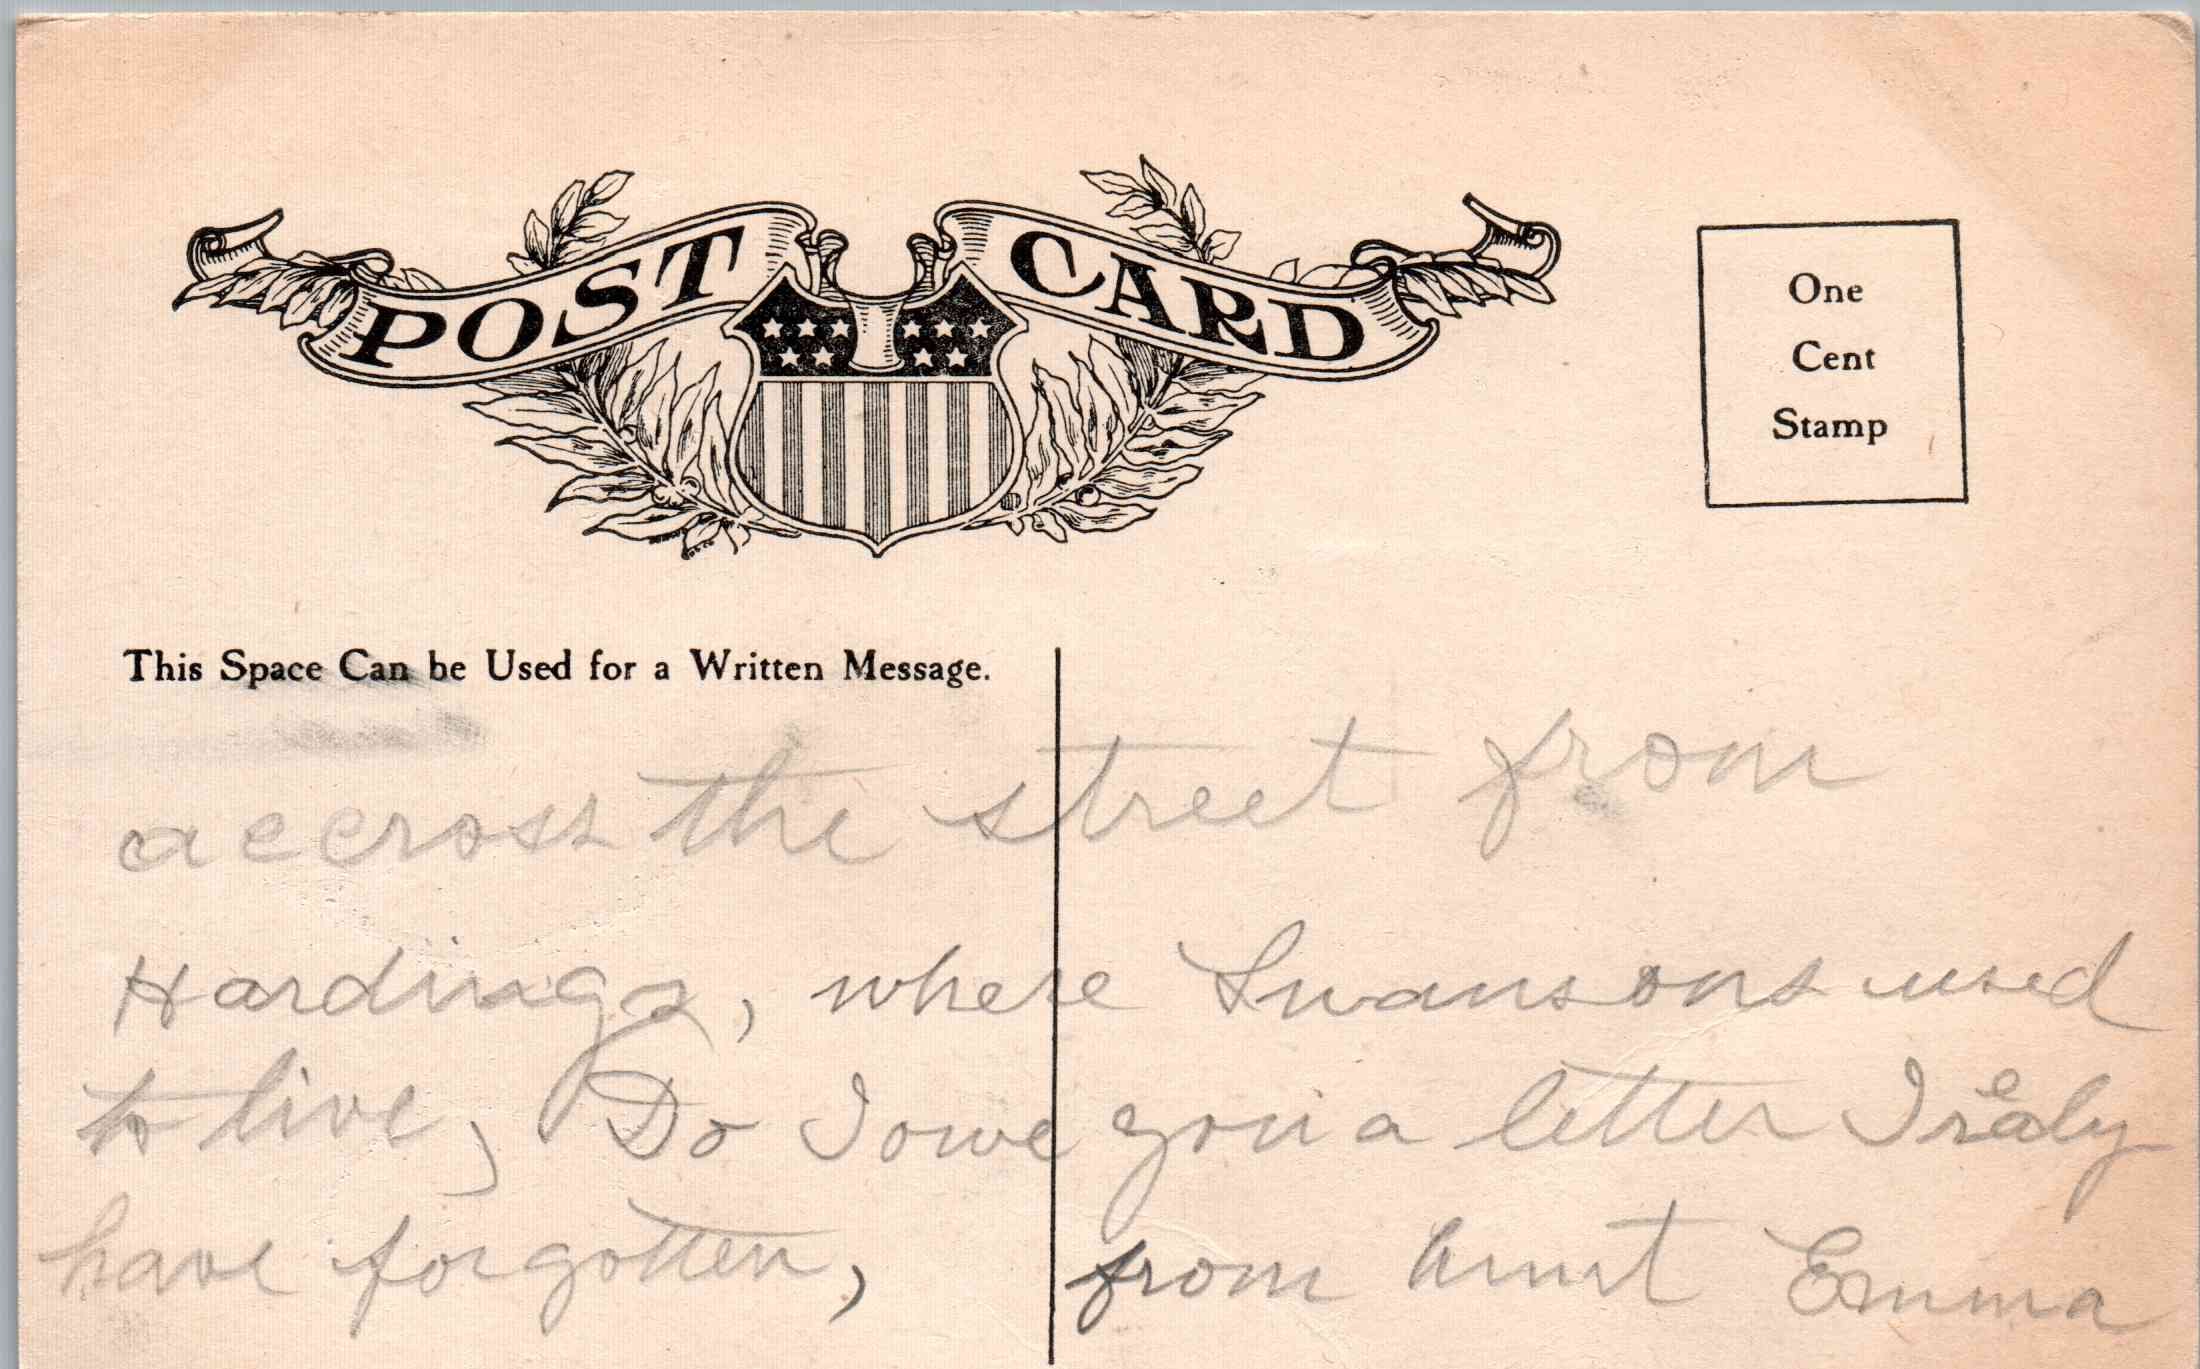 POST CARD
One
Cent
Stamp
This Space Can be Used for a Written Message.
accross the street from
Hardings, where Swansons used
to live, Do I owe you a letter I realy
have forgotten, from Aunt Emma